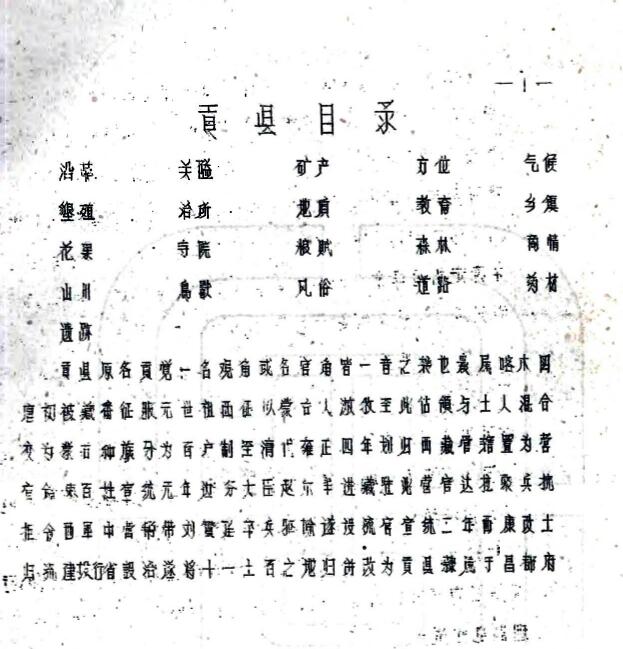 —1—
贡县目录
沿革 关隘 矿产 方位 气候
垦殖 治所 地质 教育 乡镇
花果 寺院 粮赋 森林 商情
山川 鸟兽 风俗 道路 药材
遗跡
贡县原名贡觉一名观角或名官角皆一音之 也 属喀木四
唐初被藏番征服元世祖西征以蒙古人 牧至此占领与土人混合
变为蒙古种族分为百户制至清代雍正四年划归西藏管辖置为营
官 束百姓宣统元年边务大臣赵尔丰进藏 营官达 聚兵抗
拒令西军中营 带刘 率兵驱除遂设流官宣统二年 康改土
归流建议行省设治遂将十一土百之地归 改为贡县隶属于昌都府